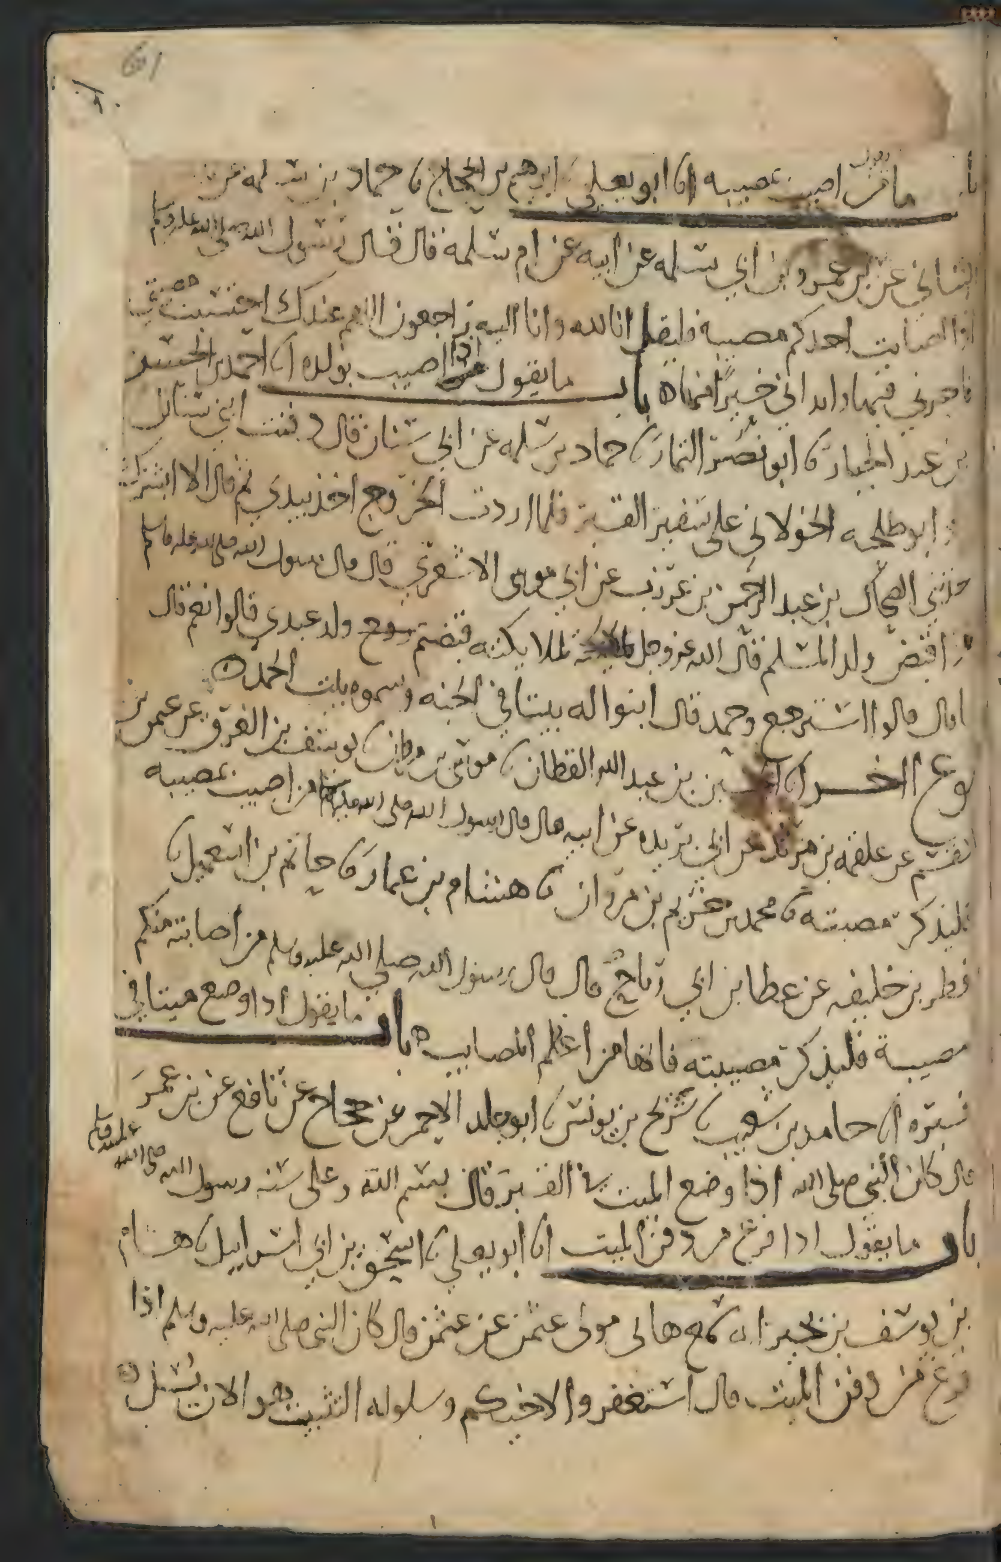 61
باب ما يقول من اصيب بمصيبة انا ابو يعلى ابرهيم بن الحجاج حماد بن سلمه
عن بن عمر بن ابي سلمه عن ابيه عن ام سلمة قال قال رسول الله صلى الله عليه وسلم
اذا اصابت احدكم مصيبة فليقل انا لله وانا اليه راجعون اللهم عندك احتسبت مصيبتي
فاجرني فيها وابدلني خيرا منها ه باب ما يقول اذا اصيب بولده انا احمد بن الحسين
بن عبد الجبار ابو نصر التمار حماد بن سلمه عن ابي سنان قال دفنت ابني سنان
و ابو طلحه الخولاني على شفير القبر فلما اردت الخروج اخذ بيدي ثم قال الا ابشرك
حدثني الضحاك بن عبد الرحمن بن عرزب عن ابي موسى الاشعري قال قال رسول الله صلى الله عليه وسلم
اذا قبض ولد المسلم قال الله عز وجل لملايكته قبضتم ولد عبدي قالوا نعم قال
فما قال قالوا استرجع وحمد قال ابنوا له بيتا في الجنه وسموه بيت الحمد ه
نوع اخر انا الحسين بن عبد الله القطان موسى بن مروان يوسف بن الغرق عن عثمن بن
القسم عن علقمه بن مرثد عن ابن بريده عن ابيه قال قال رسول الله صلى الله عليه وسلم من اصيب بمصيبه
فليذكر مصيبته محمد بن خريم بن مروان هشام بن عمار حاتم بن اسمعيل
فطر بن خليفه عن عطا بن ابي رباح قال قال رسول الله صلى الله عليه وسلم من اصابته منكم
مصيبة فليذكر مصيبته فانها من اعظم المصايب ه باب ما يقول اذا وضع ميتا في
قبره انا حامد بن شعيب سريج بن يونس ابو خلد الاحمر عن حجاج عن نافع عن بن عمر
قال كان النبي صلى الله اذا وضع الميت في القبر قال بسم الله وعلى سنه رسول الله صلى الله عليه وسلم
باب ما يقول اذا فرغ من دفن الميت انا ابو يعلى اسحق بن ابي اسرائيل هشام
بن يوسف بن بحير انه سمع هانى مولى عثمن عن عثمن قال كان النبي صلى الله عليه وسلم اذا
فرغ من دفن الميت قال استغفروا لاخيكم وسلوا له التثبيت هو الان يسل ه